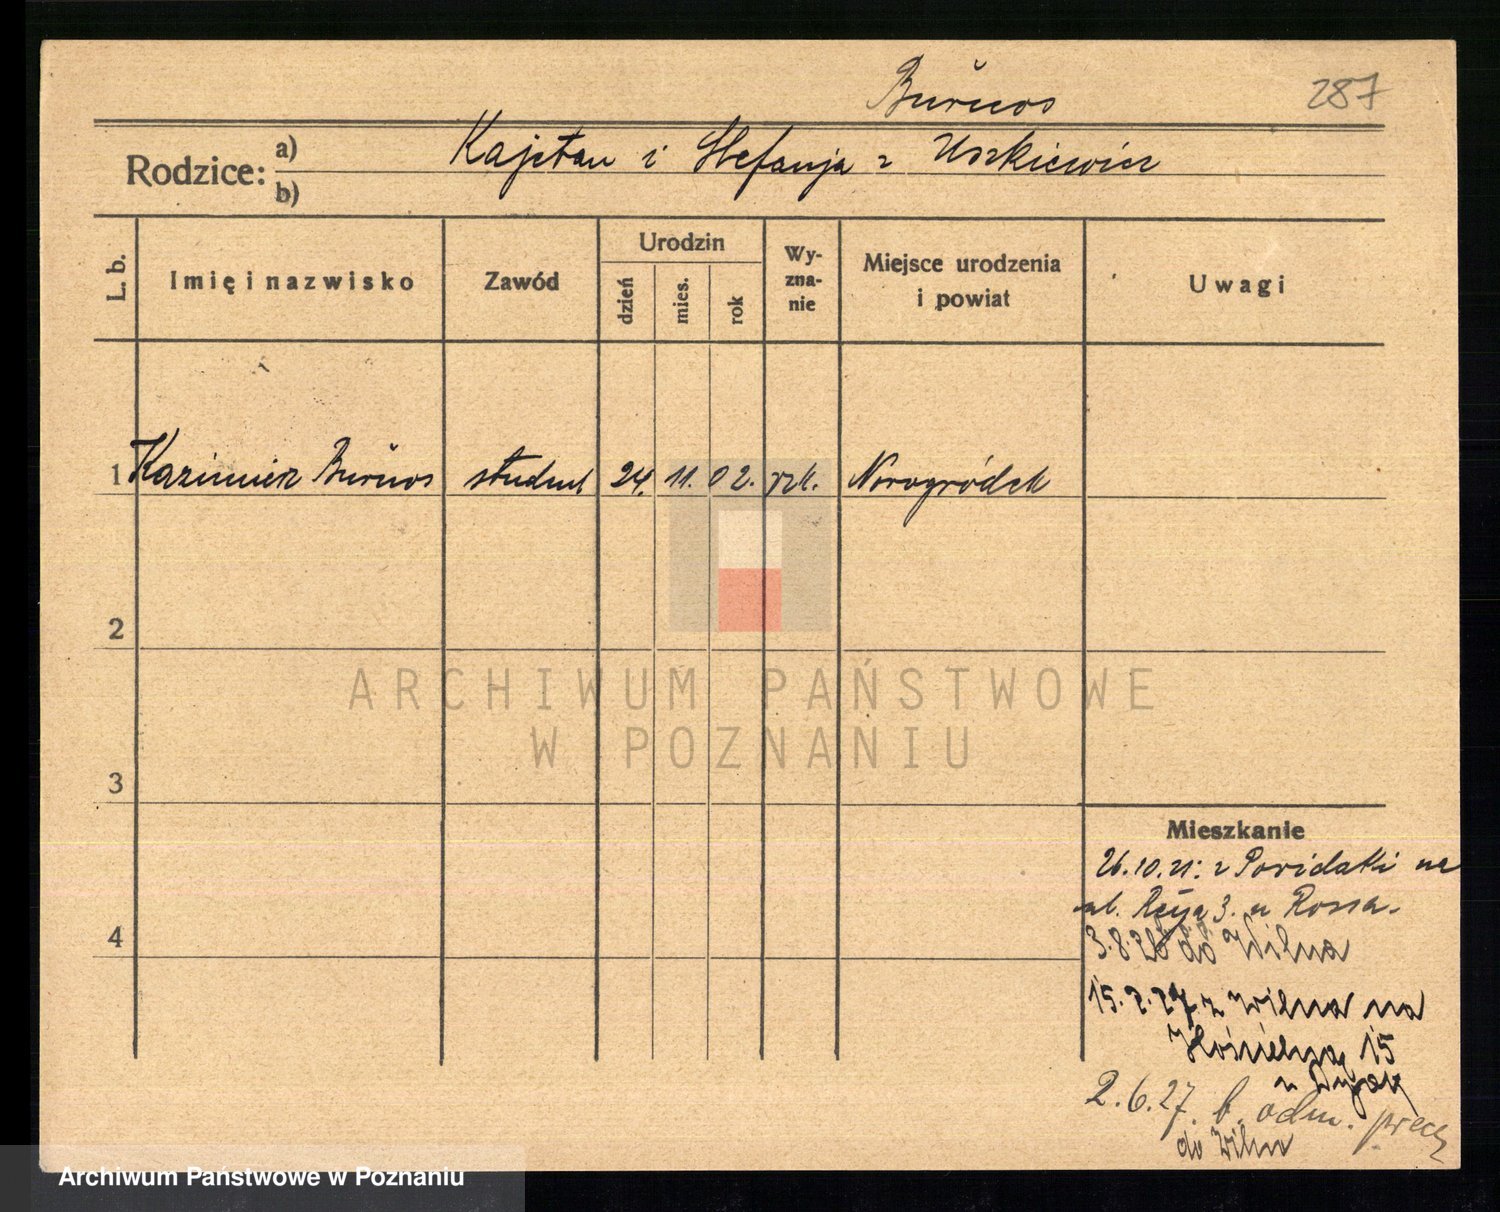 Burnos 287
Rodzice: a) Kajetan i Stefanja z Uszkiewicz
b)
L. b. Imię i nazwisko Zawód Urodzin dzień mies. rok Wy-zna-nie Miejsce urodzenia i powiat Uwagi
1 Kazimierz Burnos student 24. 11. 02. rzk. Nowogródek
2
3
4
Mieszkanie
26.10.21: z na
ul. Reja 3. u Rossa.
3.8.26 do Wilna
15. 2. 27 z Wilna na
15
u
2.6.27. b. odm. precz
do Wilna
ARCHIWUM PAŃSTWOWE
W POZNANIU
Archiwum Państwowe w Poznaniu